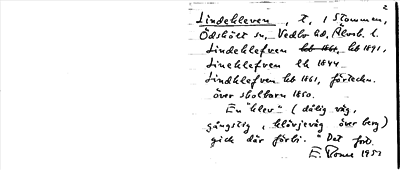 2
Lindekleven, t, i Stommen,
Ödskölt sn, Vedbo hd, Älvsb. l.
Lindeklefven hfl 1861, hfl 1891,
Lineklefven lk 1844
Lindklefven hfl 1861, förteckn.
över skolbarn 1850.
En "klev" (dålig väg,
gångstig, klövjeväg över berg)
gick där förbi. Det förb.
E. 1952